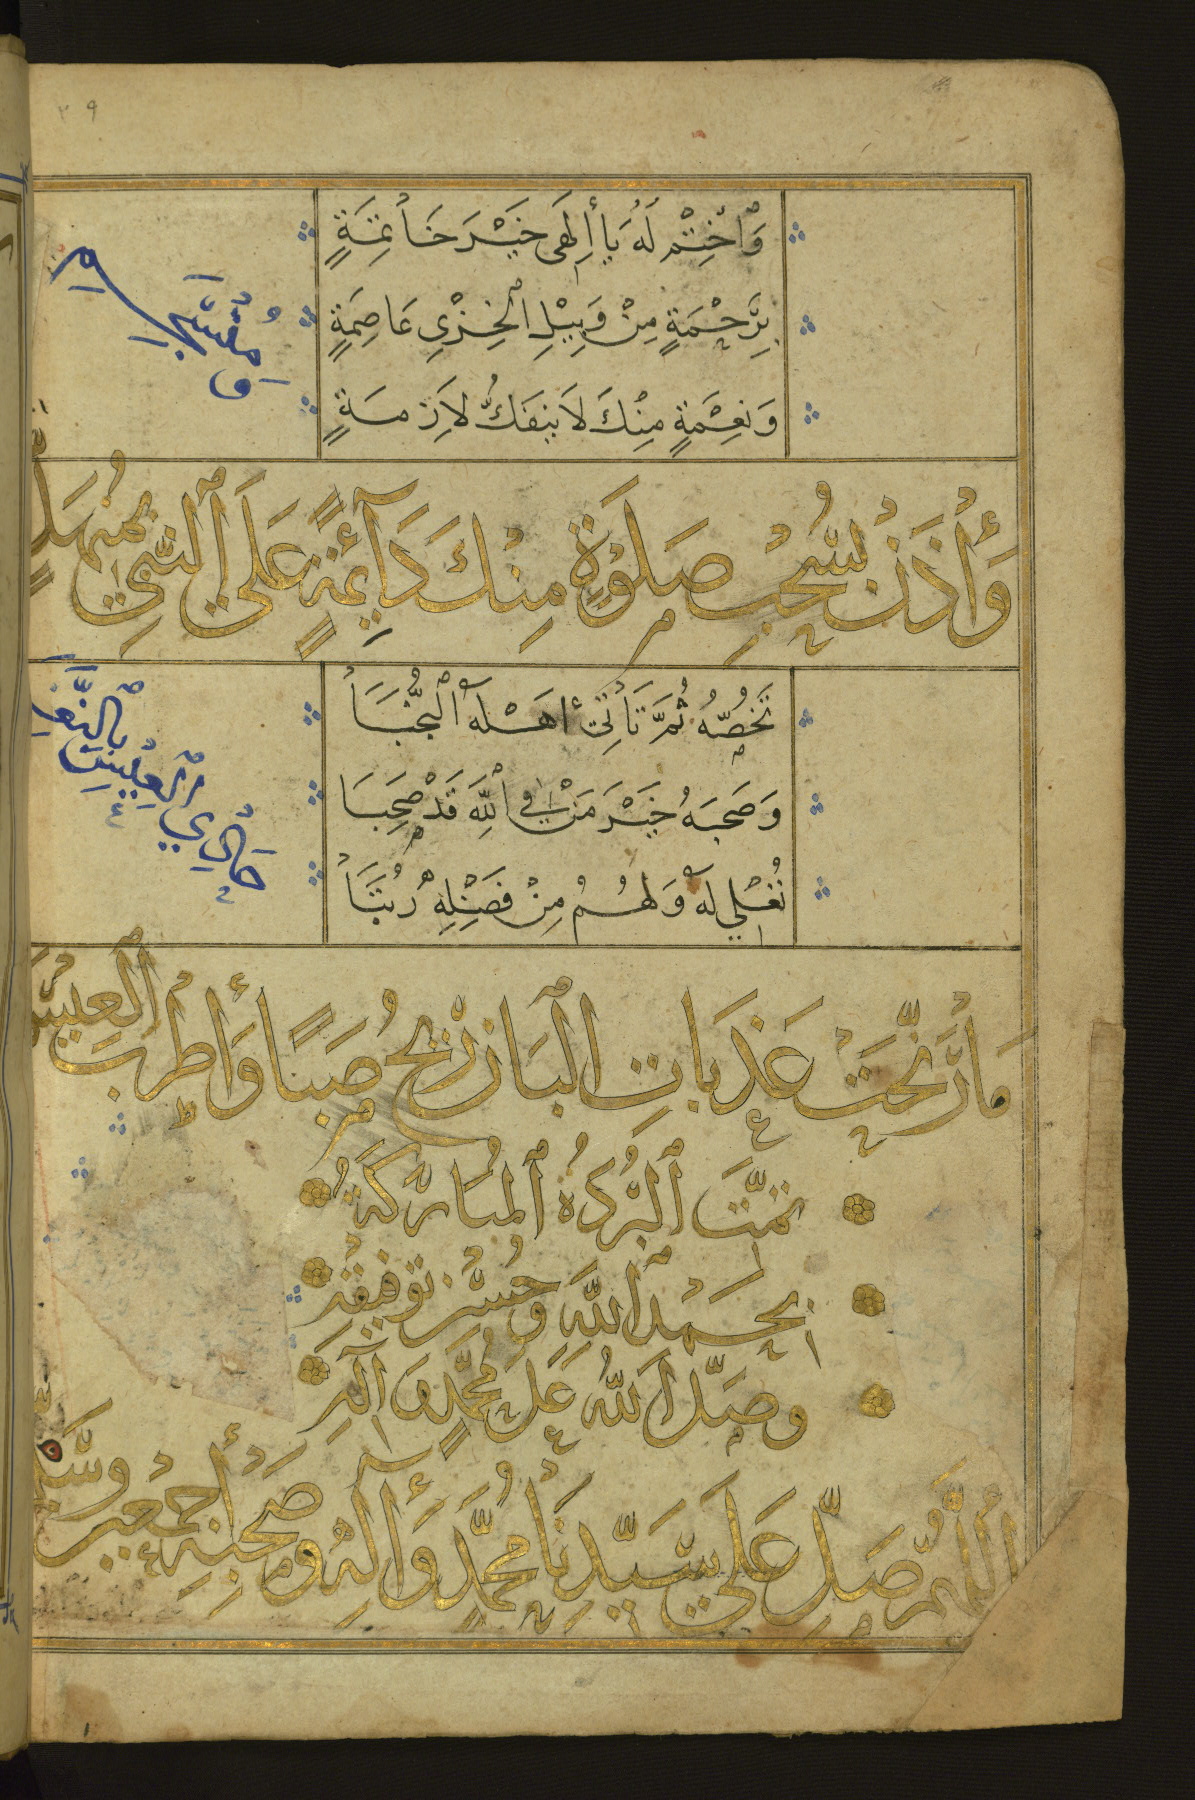 ٣٩
وَاخْتِمْ لَهُ يَا إِلٰهِي خَيْرَ خَاتِمَةٍ
بِرَحْمَةٍ مِنْ وَبِيْلِ الْخِزْيِ عَاصِمَةٍ
وَنِعْمَةٍ مِنْكَ لَا يَنْفَكُّ لَازِمَةٍ
وَأْذَنْ لِسُحْبِ صَلٰوةٍ مِنْكَ دَائِمَةٍ عَلَى النَّبِيِّ بِمُنْهَلٍّ
وَمُنْسَجِمِ
تَخُصُّهُ ثُمَّ تَأْتِي أَهْلَهُ النُّجُبَا
وَصَحْبَهُ خَيْرَ مَنْ فِي اللّٰهِ قَدْ صَحِبَا
تُعْلِي لَهُ وَلَهُمْ مِنْ فَضْلِهِ رُتَبًا
مَا رَنَّحَتْ عَذَبَاتِ الْبَانِ رِيْحُ صَبًا وَأَطْرَبَ الْعِيْسَ
حَادِي الْعِيْسِ بِالنَّغَمِ
تَمَّتِ الْبُرْدَةُ الْمُبَارَكَةُ
بِحَمْدِ اللّٰهِ وَحُسْنِ تَوْفِيْقِهِ
وَصَلَّى اللّٰهُ عَلَى مُحَمَّدٍ وَآلِهِ
اَللّٰهُمَّ صَلِّ عَلَى سَيِّدِنَا مُحَمَّدٍ وَآلِهِ وَصَحْبِهِ أَجْمَعِيْنَ وَسَلِّمْ